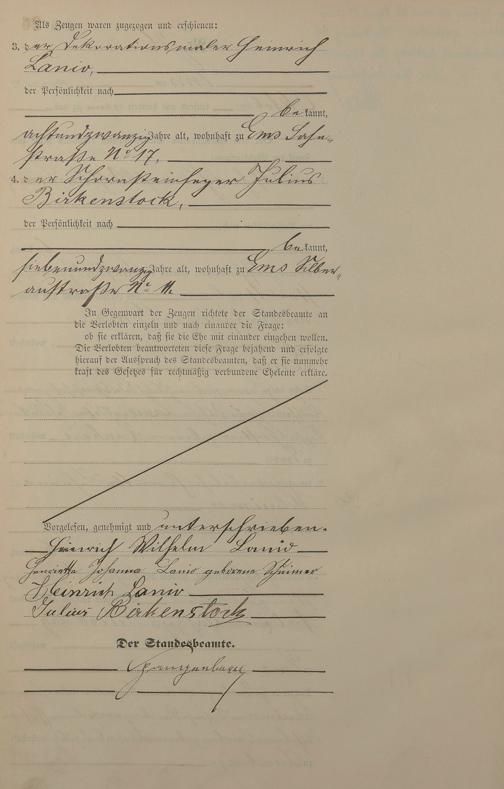 Als Zeugen waren zugezogen und erschienen:
3. der Dekorationsmaler Heinrich
Lanio,
der Persönlichkeit nach
bekannt,
achtundzwanzig Jahre alt, wohnhaft zu Ems Lahn-
straße No 17,
4. der Schornsteinfeger Julius
Birkenstock,
der Persönlichkeit nach
bekannt,
siebenundzwanzig Jahre alt, wohnhaft zu Ems Silber-
austraße No
In Gegenwart der Zeugen richtete der Standesbeamte an
die Verlobten einzeln und nach einander die Frage:
ob sie erklären, daß sie die Ehe mit einander eingehen wollen.
Die Verlobten beantworteten diese Frage bejahend und erfolgte
hierauf der Ausspruch des Standesbeamten, daß er sie nunmehr
kraft des Gesetzes für rechtmäßig verbundene Eheleute erkläre.
Vorgelesen, genehmigt und unterschrieben.
Heinrich Wilhelm Lanio
Henriette Johanna Lanio geborene
Heinrich Lanio
Julius Birkenstock
Der Standesbeamte.